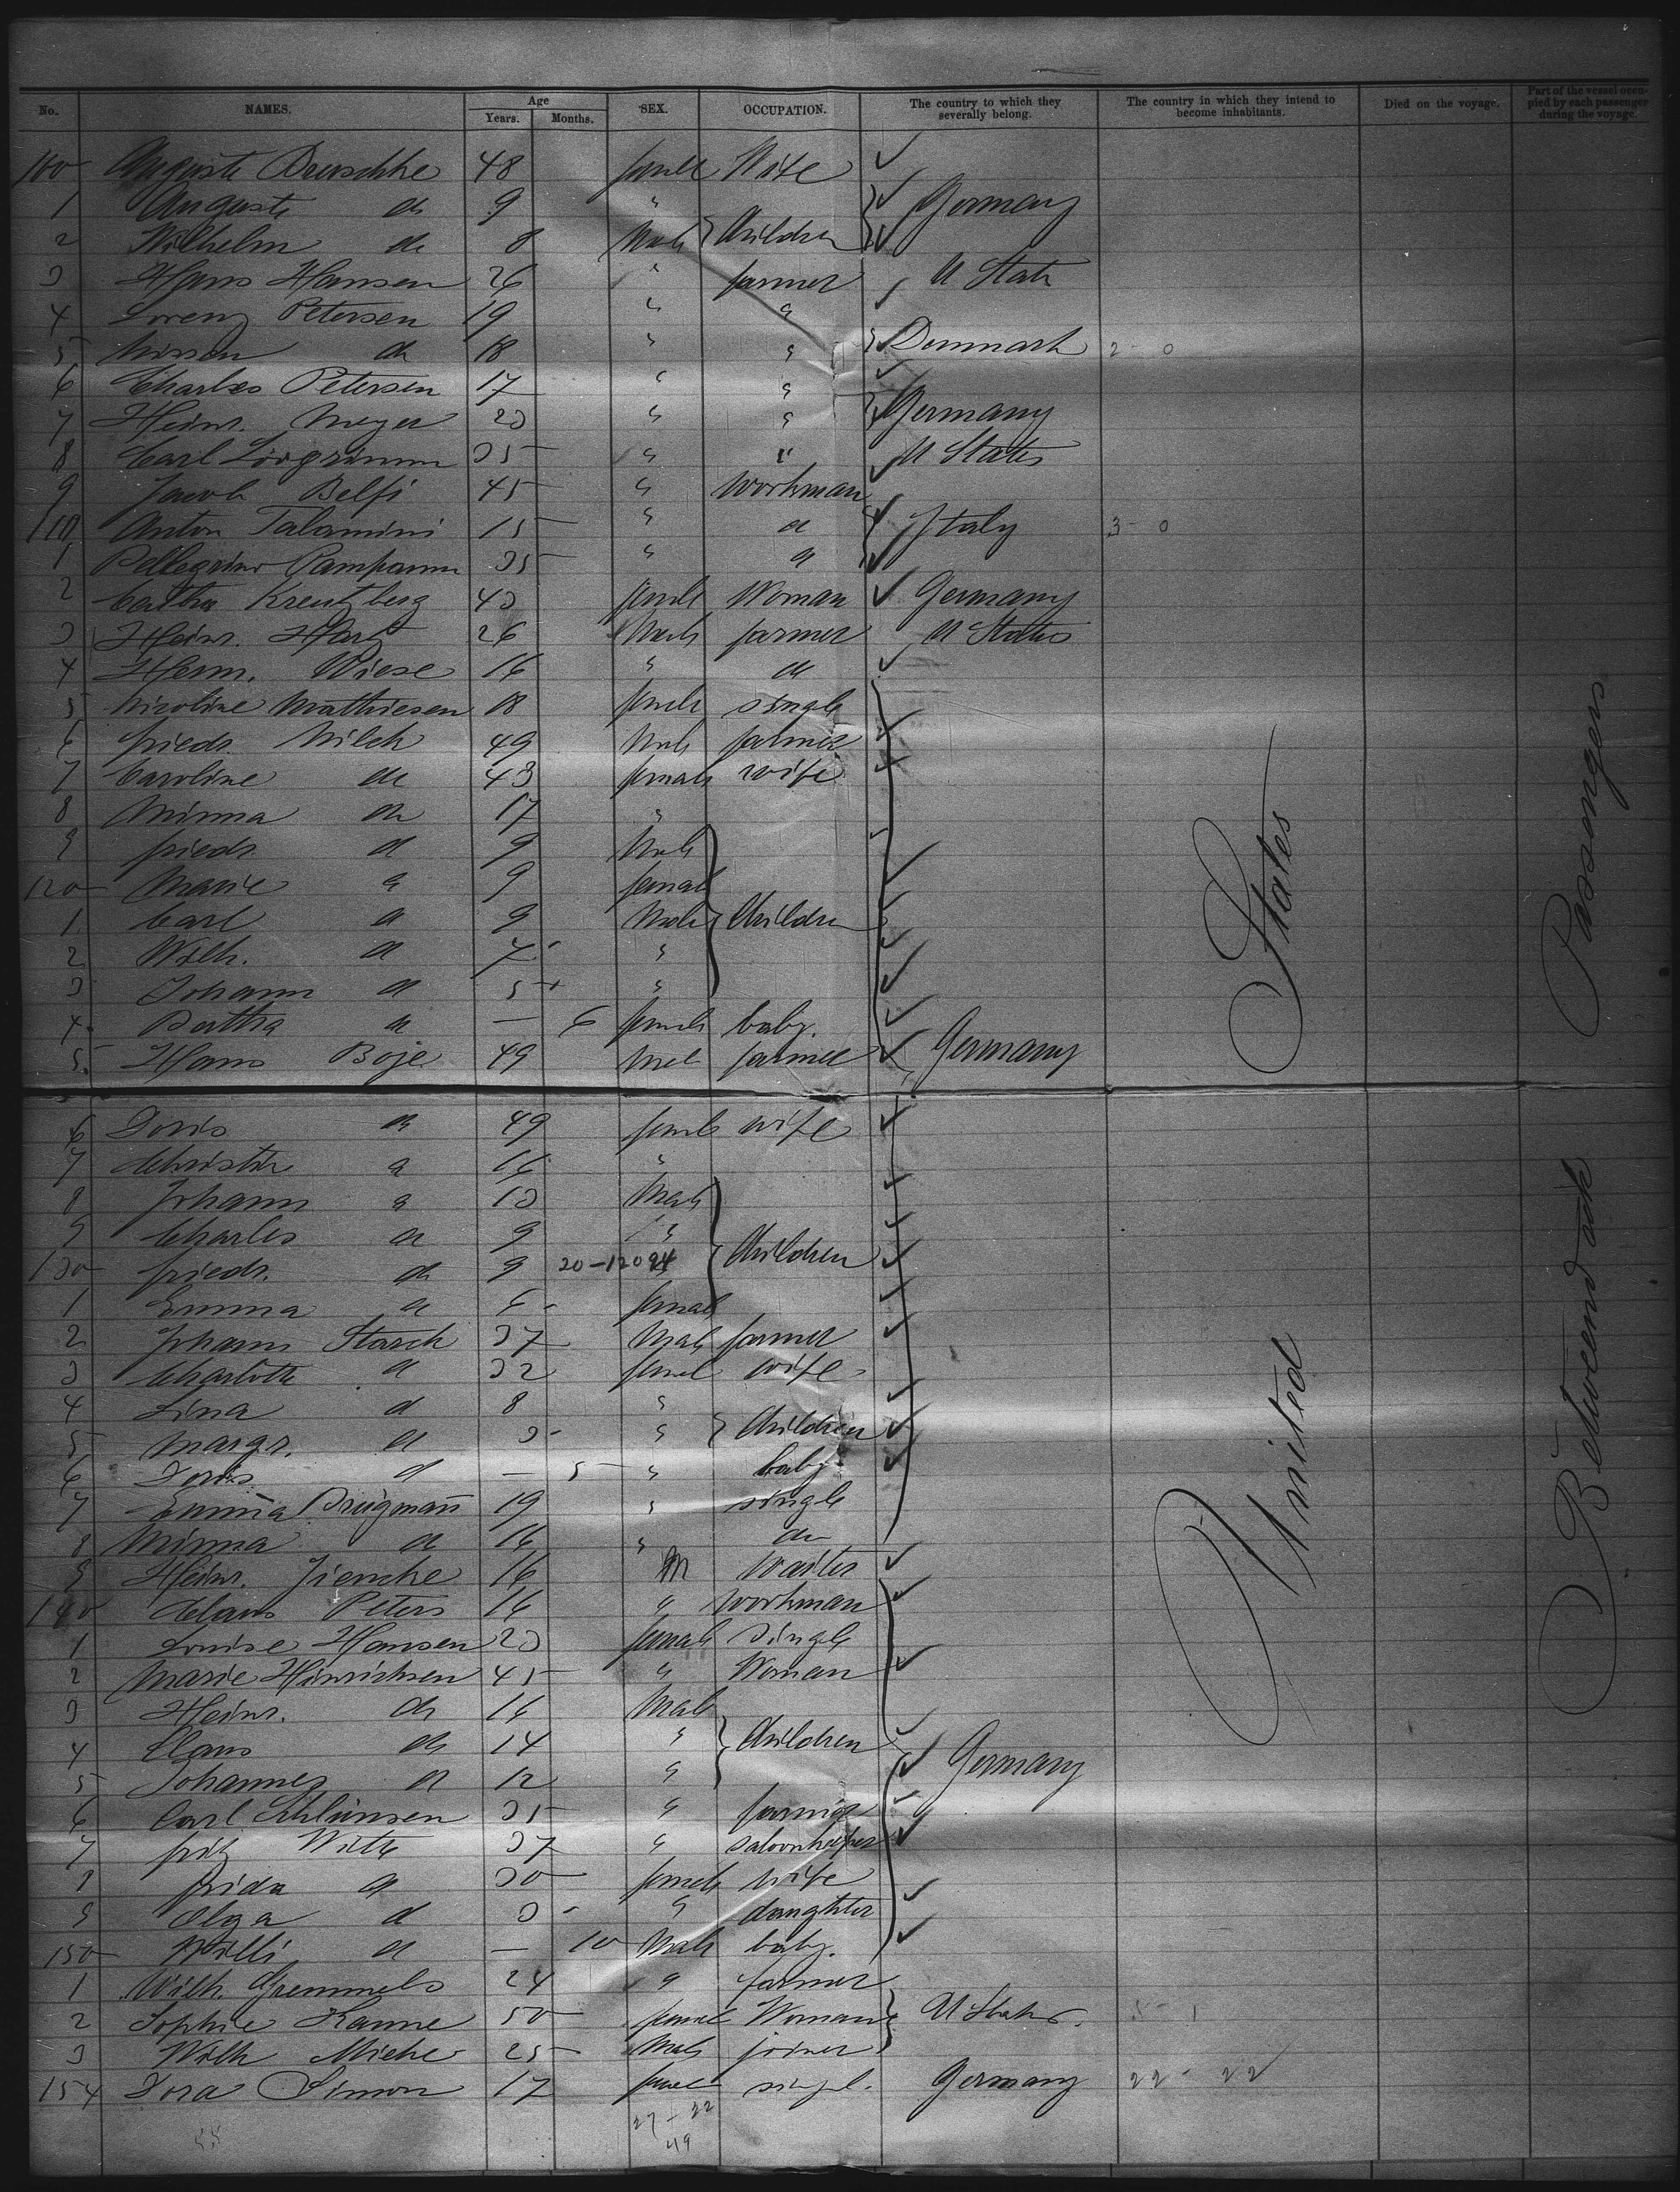 No. NAMES. Age Years. Months. SEX. OCCUPATION. The country to which they severally belong. The country in which they intend to become inhabitants. Died on the voyage. Part of the vessel occupied by each passenger during the voyage.
100 Auguste 48 female Wife
1 Auguste do 9 " Germany
2 Wilhelm do 8 Male Children
3 Hans Hansen 26 " farmer U State
4 Lorenz Petersen 19 " "
5 Nissen do 18 " " Denmark 2 - 0
6 Charles Petersen 17 " "
7 Heinr. Meyer 23 " " Germany
8 Carl 35 " " U States
9 Jacob Belfi 45 " workman
110 Anton Talamini 15 " do Italy 3 - 0
1 Pellegrino 35 " do
2 Kreutzberg 43 female Woman Germany
3 Heinr. 26 Male farmer U States
4 Herm. Wiese 16 " do
5 Nicoline Mathiesen 18 female single
6 friedr. Milch 49 Male farmer
7 Caroline do 43 female wife
8 Minna do 17 "
9 friedr. do 9 Male
120 Marie do 9 female
1 Carl do 9 Male Children
2 Wilh. do 7 "
3 Johann do 5 "
4 Bertha do — 6 female baby.
5 Hans Boje 49 Male farmer Germany
6 Doris do 49 female wife
7 do 16 "
8 Johann do 13 Male
9 Charles do 9 "
130 friedr. do 9 20-12094 Children
1 Emma do 6 female
2 Johann Storch 37 Male farmer
3 Charlotte do 32 female wife
4 Lina do 8 "
5 Margr. do 3 " Children
6 Doris do — 5 " baby
7 Emma Brugmann 19 " single
8 Minna do 16 " do
9 Heinr. 16 M Waiter
140 Claus Peters 16 " workman
1 Louise Hansen 23 female single
2 Marie Hinrichsen 45 " Woman
3 Heinr. do 16 Male
4 Claus do 14 " Children Germany
5 Johannes do 12 "
6 Carl 35 " farmer
7 fritz Witte 37 " saloonkeeper
8 frida do 30 female wife
9 Olga do 3 " daughter
150 Willi do — 10 Male baby.
1 Wilh. Gremmels 24 " farmer
2 Sophie Kanne 50 female Woman U States. 5 - 1
3 Wilh 25 Male joiner
154 Dora Simon 17 female singel. Germany 22 - 22
27 - 22
49
United States
Betweendeck Passengers